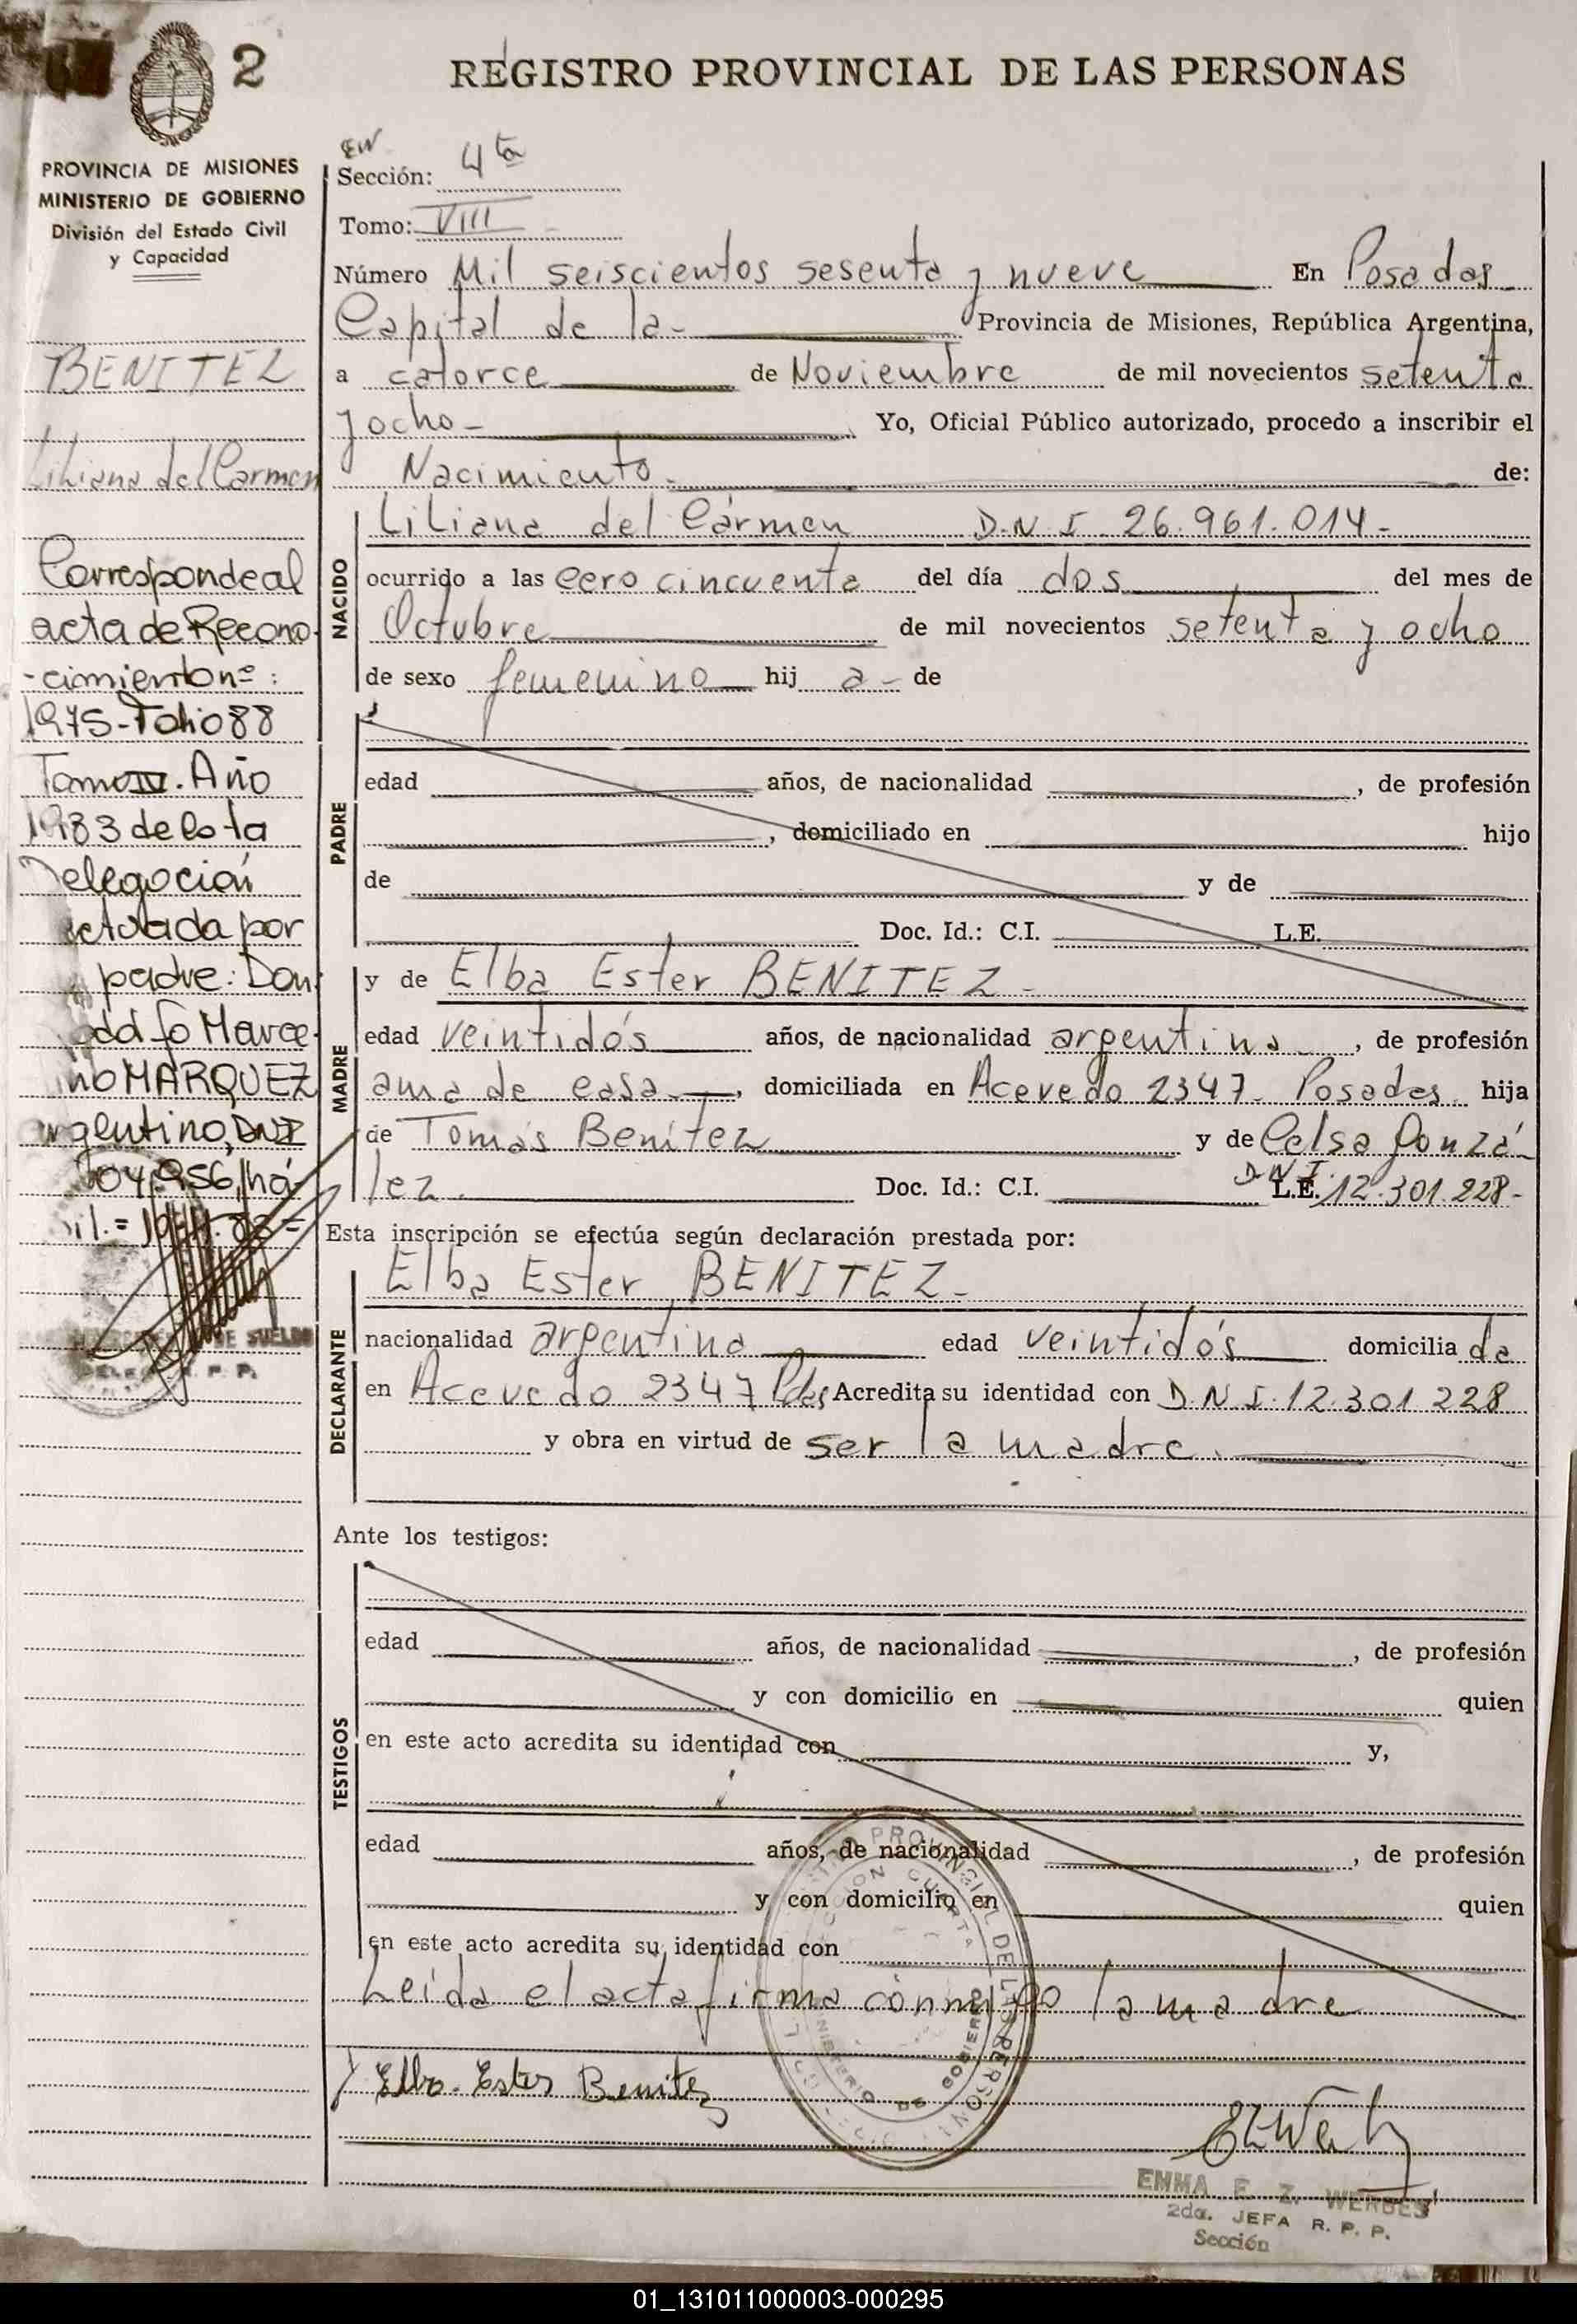 2
REGISTRO PROVINCIAL DE LAS PERSONAS
PROVINCIA DE MISIONES
MINISTERIO DE GOBIERNO
División del Estado Civil
y Capacidad
BENITEZ
Liliana del Carmen
Corresponde al
acta de Recono
-cimiento nº:
1975-Folio 88
Tomo IV. Año
1983 de la ta
Delegación
padre: Don
Marce
no MARQUEZ
argentino, DNI
956, há
DE SUELDO
R. P. P.
Sección: 4ta
Tomo: VIII
Número Mil seiscientos sesenta y nueve En Posadas
Capital de la- Provincia de Misiones, República Argentina,
a catorce de Noviembre de mil novecientos setenta
y ocho- Yo, Oficial Público autorizado, procedo a inscribir el
Nacimiento. de:
NACIDO
Liliana del Cármen D.N.I 26.961.014-
ocurrido a las cero cincuenta del día dos del mes de
Octubre de mil novecientos setenta y ocho
de sexo femenino hij a- de
PADRE
edad años, de nacionalidad , de profesión
, domiciliado en hijo
de y de
Doc. Id.: C.I. L.E.
MADRE
y de Elba Ester BENITEZ-
edad veintidós años, de nacionalidad argentina , de profesión
ama de casa , domiciliada en Acevedo 2347- Posadas hija
de Tomás Benítez y de Celsa Gonzá-
lez. Doc. Id.: C.I. D N I. L.E. 12.301.228-
Esta inscripción se efectúa según declaración prestada por:
DECLARANTE
Elba Ester BENITEZ-
nacionalidad argentina edad veintidós domicilia da
en Acevedo 2347 Pdas Acredita su identidad con D.N.I. 12.301.228
y obra en virtud de ser la madre.
Ante los testigos:
TESTIGOS
edad años, de nacionalidad , de profesión
y con domicilio en quien
en este acto acredita su identidad con y,
edad años, de nacionalidad , de profesión
y con domicilio en quien
en este acto acredita su identidad con
Leída el acta firma conmigo la madre
Elba Ester Benitez
EMMA E. Z. WERBES
2da. JEFA R. P. P.
Sección
01_131011000003-000295